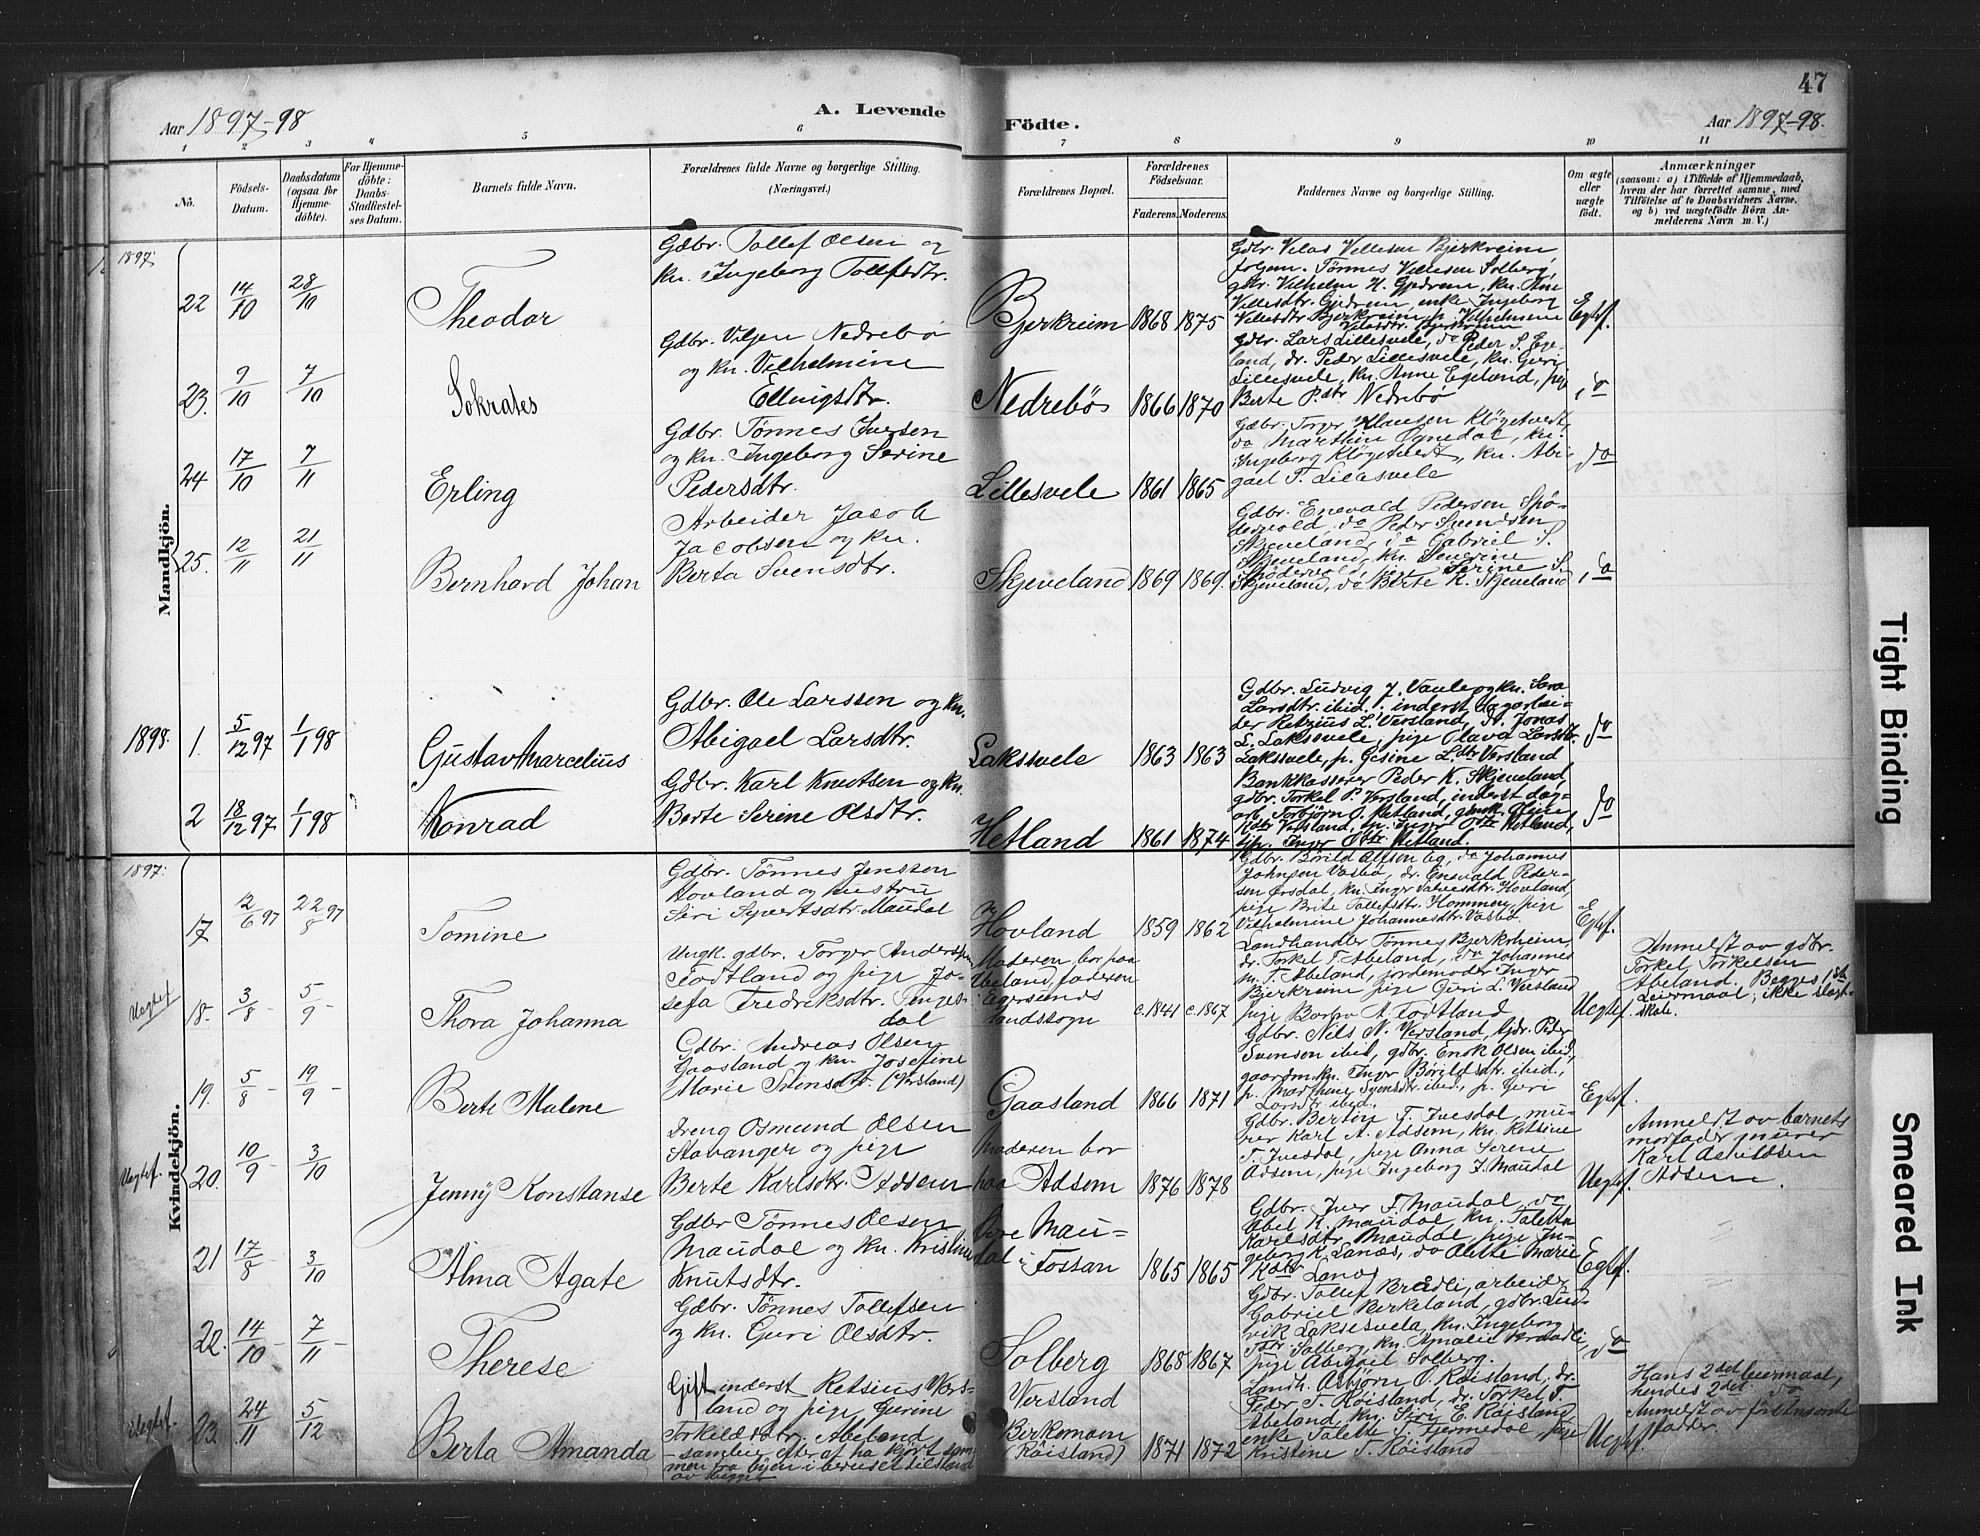 47
Aar 1897-98
A. Levende
Födte.
Aar 1897-98.
1 2 3 4 5 6 7 8 9 10 11
No.
Födsels-
Datum.
Daabsdatum
(ogsaa for
Hjemme-
döbte).
For Hjemme-
döbte:
Daabs-
Stadfæstel-
ses Datum.
Barnets fulde Navn.
Forældrenes fulde Navne og borgerlige Stilling.
(Næringsvei.)
Forældrenes Bopæl.
Forældrenes
Födselsaar.
Faderens. Moderens.
Faddernes Navne og borgerlige Stilling.
Om ægte
eller
uægte
født.
Anmærkninger
(saasom: a) i Tilfælde af Hjemmedaab,
hvem der har forrettet samme, med
Tilföielse af to Daabsvidners Navne,
og b) ved uægtefödte Börn An-
melderens Navn m. V.)
Mandkjön.
1897.
22 14/10 28/10
Theodor
Gdbr. Tollef Olsen og
kn. Ingeborg Tollefsdtr.
Bjerkreim 1868 1875
Gdbr. Velas Villesen Bjerkreim,
Tönnes Villesen Solberg,
gbr. Vilhelm H. Gjedrem, kn. Ane
Villesdtr. Gjedrem, enke Ingeborg
Villasdtr. Bjerkreim, p. Vilhelmine
Velasdtr. Bjerkreim
Egtef.
23. 9/10 7/10
Sokrates
Gdbr. Viljen Nedrebö
og kn. Vilhelmine
Ellingsdtr.
Nedrebö 1866 1870
Gdbr. Lars Lillesvele, do Peder S. Ege-
land, dr. Peder Lillesvele, kn. Guri
Lillesvele, kn. Anne Egeland, pige
Berte P.dtr. Nedrebö
do
24 17/10 7/11
Erling
Gdbr. Tönnes Iversen
og kn. Ingeborg Serine
Pedersdtr.
Lillesvele 1861 1865
Gdbr. Torger Klausen Klögetvedt,
do Marthin Ognedal, kn.
Ingeborg Klögetvedt, kn. Abi-
gael T. Lillesvele
do
25. 12/11 21/11
Bernhard Johan
Arbeider Jacob
Jacobsen og kn.
Berta Svensdtr.
Skjeveland 1869 1869.
Gdbr. Enevald Pedersen Spö-
dervold, do Peder Svendsen
Skjeveland, do Gabriel S.
Skjeveland, kn. Severine
Spödervold, pige Serine S.
Skjeveland, do Berte K. Skjeveland
do
1898. 1. 5/12 97 1/1 98
Gustav Marcelius
Gdbr. Ole Larssen og kn.
Abigael Larsdtr.
Laksvele 1863 1863
Gdbr. Ludvig J. Vaule og kn. Sara
Larsdtr. ibid., inderst dagarbei-
der Retzius L. Versland, dr. Jonas
L. Laksvele, pige Olava Larsdtr.
Laksvele, p. Gisine L.dtr. Versland
do
2 18/12 97 1/1 98
Konrad
Gdbr. Karl Knutsen og kn.
Berte Serine Olsdtr.
Hetland 1861 1874
Bankkasserer Peder K. Skjeveland,
gdbr. Torkel P. Versland, inderst dag-
arb. Torbjörn O. Hetland,
Versland, Hetland,
p. Inger O.dtr. Hetland.
do
Kvindekjön.
1897.
17 12/6 97 22/8 97
Tomine
Gdbr. Tönnes Jenssen
Hovland og hustru
Siri Syvertsdtr. Maudal
Hovland 1859 1862
Gdbr. Börild Alfsen Eg, do Johannes
Johnsen Vasbö, dr. Enevald Peder-
sen Örsdal, kn. Inger Salvesdtr. Hovland,
pige Brite Tollefsdtr. Hommen, pige
Vilhelmine Johannesdtr. Vasbö.
Egtef.
Uegtef
18. 3/8 - 5/9 -
Thora Johanna
Ungk. gdbr. Torger Anderssen
Todtland og pige Jo-
sefa Fredriksdtr. Tenges-
dal
Moderen bor paa
Abeland, faderen
i Egersunds
landsogn
c. 1841 c. 1867
Landhandler Tönnes Bjerkrheim,
dr. Torkel T. Abeland, do Johannes
M. T. Abeland, jordemoder Inger
Bjerkreim, pige Guri L. Versland
pige Barbro A. Todtland
Uegtef.
Anmeldt av gdbr.
Torkel Torkelsen
Abeland. Begges 1ste
Leiermaal; ikke slegt-
skab.
19. 5/8 - 19/9 -
Berte Malene
Gdbr. Andreas Olsen
Gaasland og kn. Josefine
Marie Svensdtr. (Versland)
Gaasland 1866 1871
Gdbr. Nils N. Versland, gdr. Peder
Svensen ibid, gdbr. Enok Olsen ibid,
gaardm.kn. Inger Börildsdtr. ibid.,
p. Marthine Svensdtr. ibid., p. Guri
Larsdtr. ibid.
Egtef.
Uegtef.
20. 10/9 - 3/10
Jenny Konstanse
Dreng Osmund Olsen
Stavanger og pige
Berte Karlsdtr. Adsem
Moderen bor
paa Adsem 1876 1878
Gdbr. Bertön T. Ivesdal, mu-
rer Karl A. Adsem, kn. Retsine
T. Ivesdal, pige Anna Serene
Adsem, pige Ingeborg J. Maudal
Uegtef.
Anmeldt av barnets
morfader murer
Karl Asmildsen
Adsem.
21 17/8 - 3/10
Alma Agate
Gdbr Tönnes Olsen
Maudal og kn. Kristine
Knutsdtr.
Övre Mau-
dal i Fossan 1865 1865
Gdbr. Iver T. Maudal, do
Abel K. Maudal, kn. Taletta
Karlsdtr. Maudal, pige In-
geborg K. Lanes, do Olette Marie
K.dtr. Lanes
Egtef.
22. 14/10 - 7/11 -
Therese
Gdbr. Tönnes Tollefsen
og kn. Guri Olsdtr.
Solberg 1868 1867
Gdbr. Tollef Brådli, arbeider
Gabriel Birkeland, gdbr. Lud-
vik Laksesvela, kn. Ingeborg
T.dtr. Solberg, kn. Amalie Braadli,
pige Abigael Solberg.
do
Uegtef.
23. 24/11 5/12
Berta Amanda
Gift inderst Retsius Vers-
land og pige Gurine
Torkildsdtr. Abeland
- samleie efter at ha kjört sam-
men fra byen i beruset tilstand
av begge
Versland
Birkemoen
(Röisland) 1871 1872
Landh. Asbjörn O. Röisland, dr.
Peder T. Röisland, dr. Torkel T.
Abeland, kn. Siri E. Röisland
enke Talette T. Tjermedal, pige
Kristine T. Röisland
Uegtef.
Hans 2det leiermaal,
hendes 2det. do
Anmeldt av
fader
Tight Binding
Smeared Ink